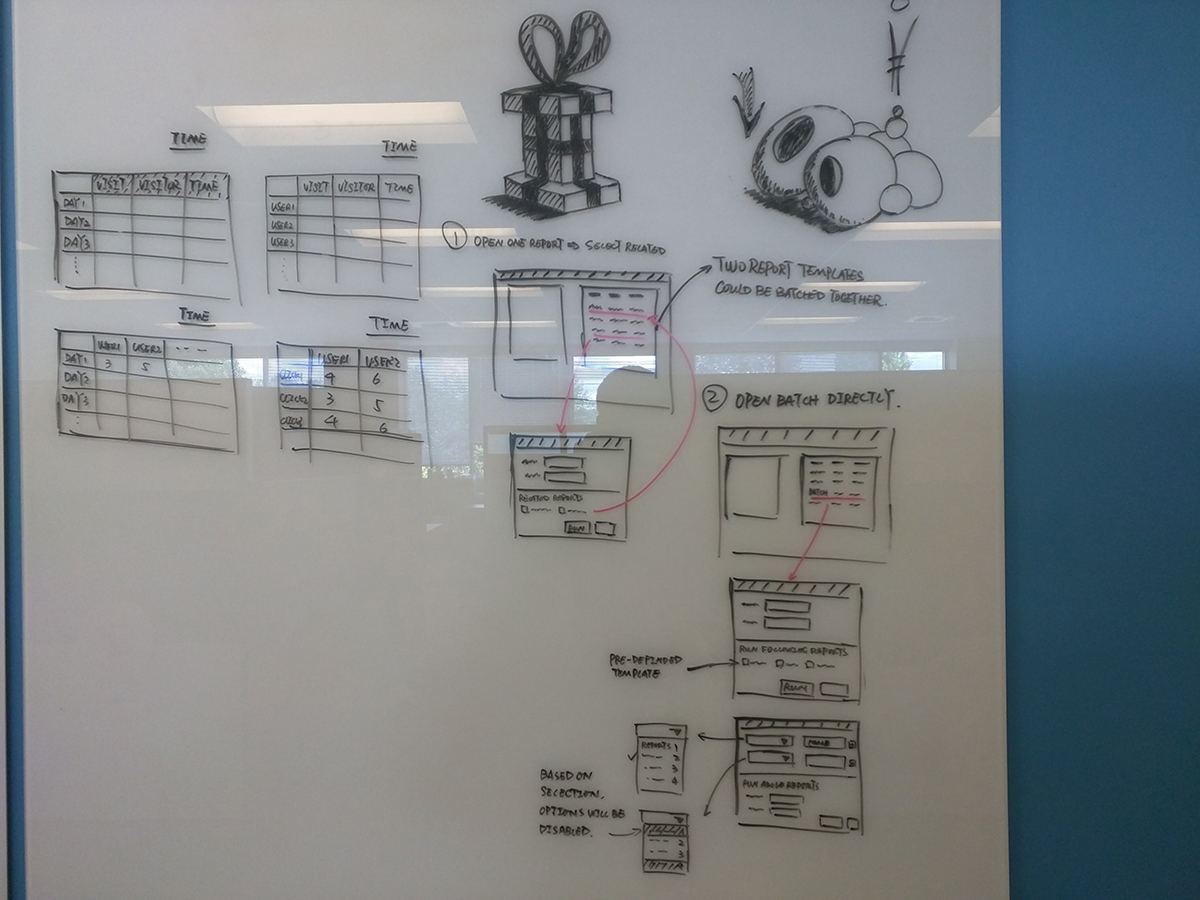 TIME
VISIT VISITOR TIME
DAY1
DAY2
DAY3
TIME
VISIT VISITOR TIME
USER1
USER2
USER3
TIME
USER1 USER2
DAY1 3 5
DAY2
DAY3
TIME
USER1 USER2
4 6
3 5
4 6
1 OPEN ONE REPORT ⇒ SELECT RELATED
TWO REPORT TEMPLATES
COULD BE BATCHED TOGETHER.
RELATED REPORTS
RUN
2 OPEN BATCH DIRECTLY.
BATCH
RUN FOLLOWING REPORTS
RUN
PRE-DEFINDED
TEMPLATE
REPORTS 1
2
3
4
NAME
RUN ABOVE REPORTS
BASED ON
SELECTION.
OPTIONS WILL BE
DISABLED.
2
3